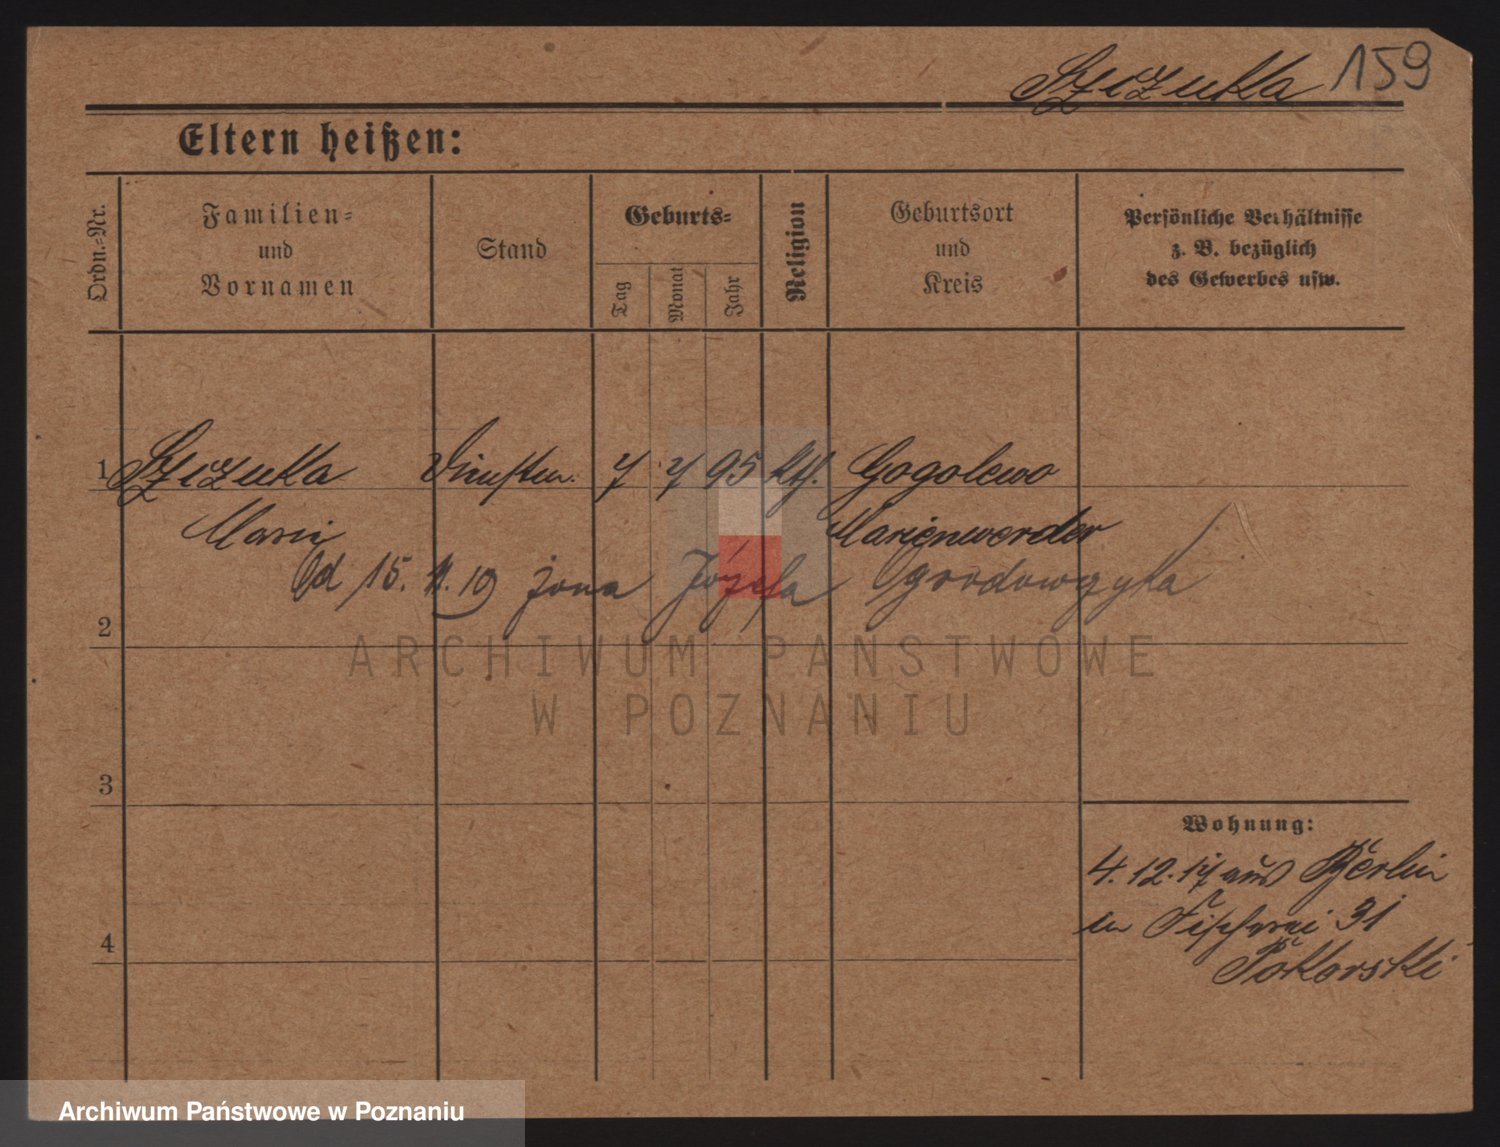 Szczuka 159
Eltern heißen:
Ordn.=Nr.
Familien=
und
Vornamen
Stand
Geburts=
Tag
Monat
Jahr
Religion
Geburtsort
und
Kreis
Persönliche Verhältnisse
z. B. bezüglich
des Gewerbes usw.
1 Szczuka 7 7 95 kth. Gogolewo
Maria Marienwerder
Od 15. 11. 19 żona Józefa
2
ARCHIWUM PAŃSTWOWE
W POZNANIU
3
Wohnung:
4. 12. 17 aus Berlin
in Fischerei 31
4
Pokorski
Archiwum Państwowe w Poznaniu